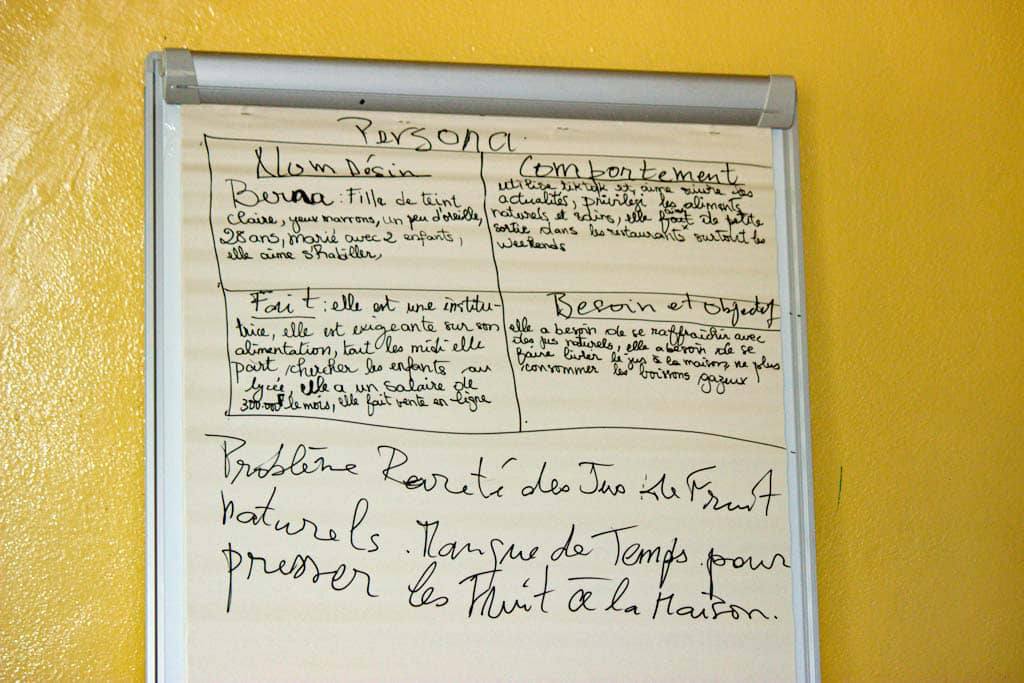 Persona
Nom Désin
Berna : Fille de teint
claire, yeux marrons, un peu d'oreille,
28 ans, marié avec 2 enfants,
elle aime s'habiller,
Comportement
utilise tiktok et, aime suivre les
actualités, privilegi les aliments
naturels et sains, elle fait de petite
sortie dans les restaurants surtout les
weekends
Fait : elle est une institu-
trice, elle est exigeante sur son
alimentation, tout les midi elle
part chercher les enfants au
lycée, elle a un salaire de
300.000F le mois, elle fait vente en ligne
Besoin et objectif
elle a besoin de se raffraîchir avec
des jus naturels, elle a besoin de se
faire livrer le jus à la maison, ne plus
consommer les boissons gazeux
Problème Rareté des Jus de Fruit
naturels. Manque de Temps pour
presser les Fruit à la Maison.